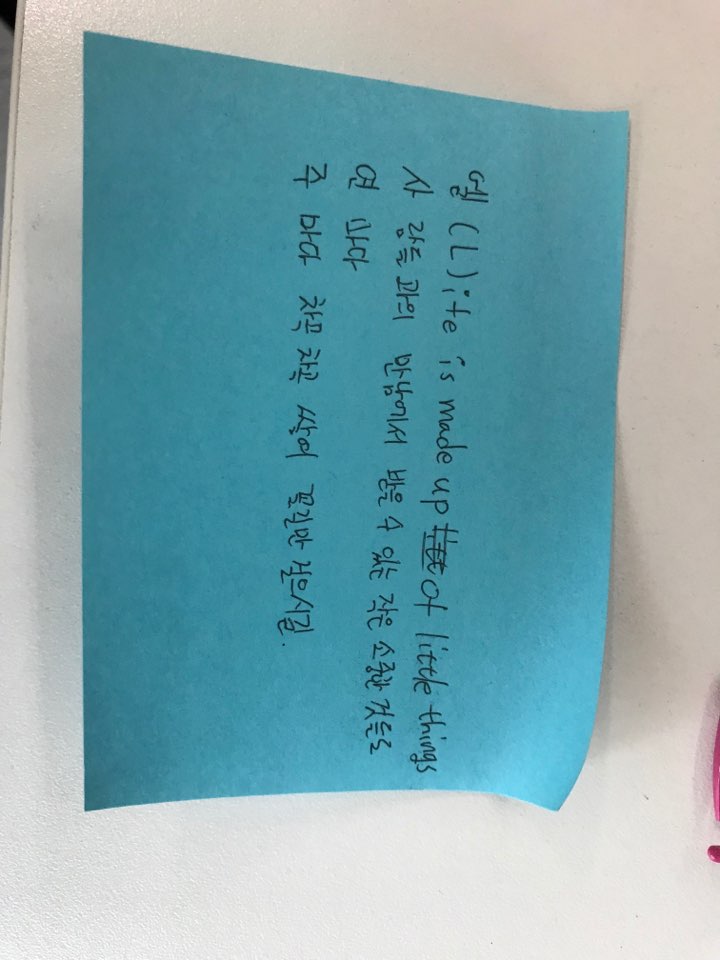 엘 (L)ife is made up of little things
사 람들과의 만남에서 받을 수 있는 작은 소중한 것들로
연 마다
주 마다 차곡차곡 쌓여 꽃길만 걸으시길.